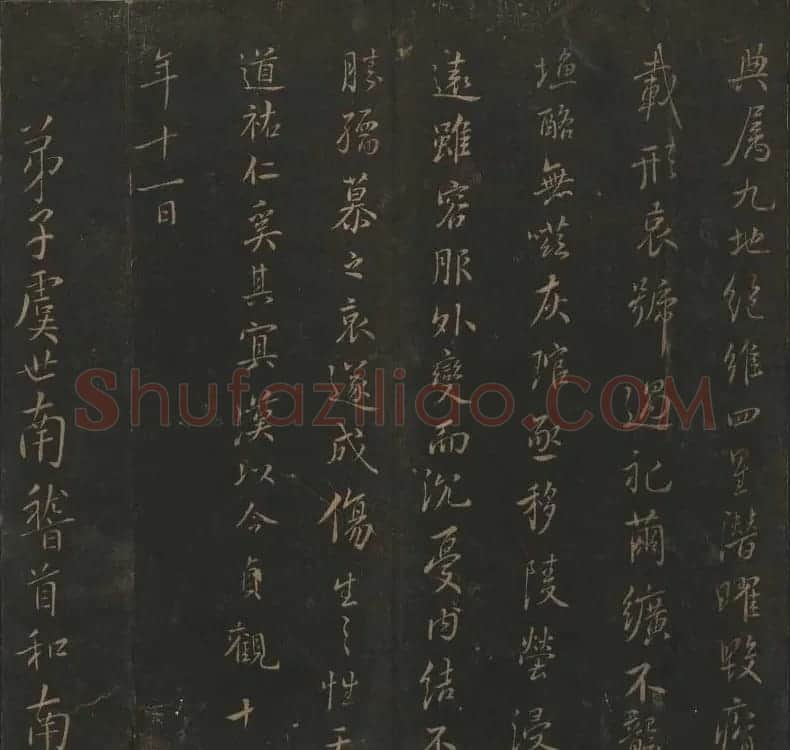 典属九地絕維四星潛曜毀瘠
載形哀號過礼繭纊不襲
塩酪無嗞灰琯亟移陵塋浸
遠雖容服外變而沉憂内結不
勝孺慕之哀遂成傷生之性天
道祐仁奚其冥漠以今貞觀十
年十一日
弟子虞世南稽首和南
Shufaziliao.COM